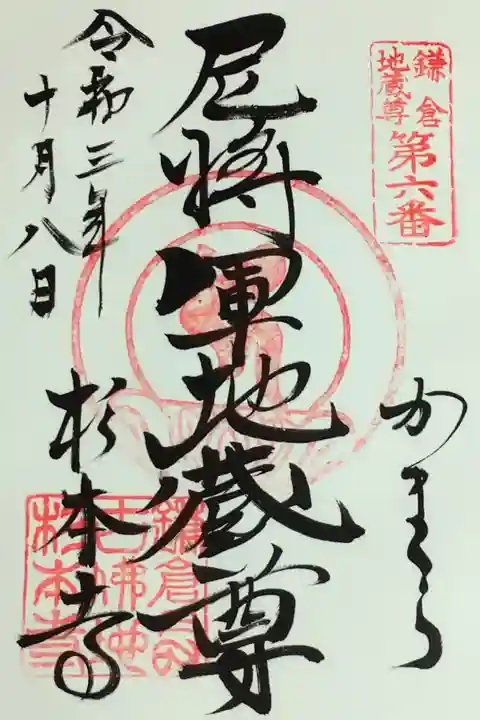 鎌倉
地蔵尊
第六番
かまくら
尼将軍地蔵尊
杉本寺
令和三年
十月八日